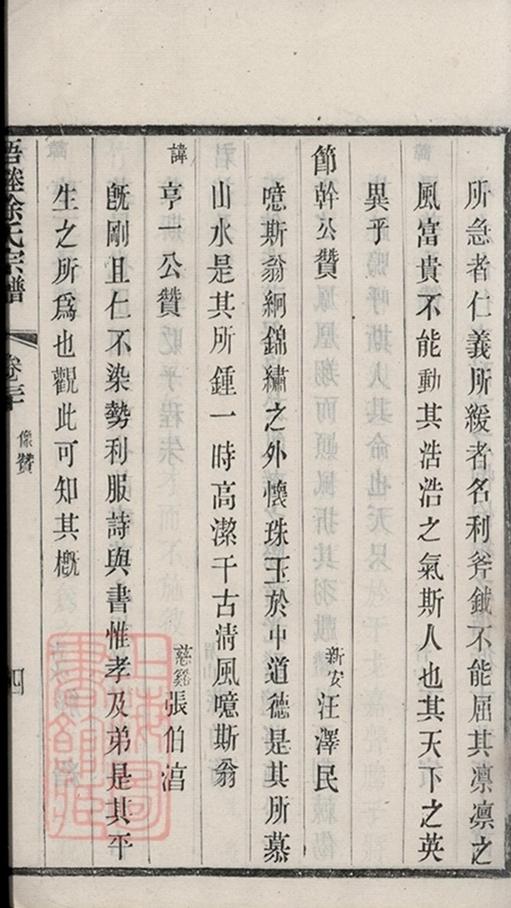 所急者仁義所緩者名利斧鉞不能屈其凛凛之
風富貴不能動其浩浩之氣斯人也其天下之英
異乎
節幹公贊 新安 汪澤民
噫斯翁絅錦繡之外懷珠玉於中道德是其所慕
山水是其所鍾一時高潔千古清風噫斯翁
諱亨一公贊 慈谿 張伯
既剛且仁不染勢利服詩與書惟孝及弟是其平
生之所爲也觀此可知其概
徐氏宗譜 像贊 四
上海圖書館藏